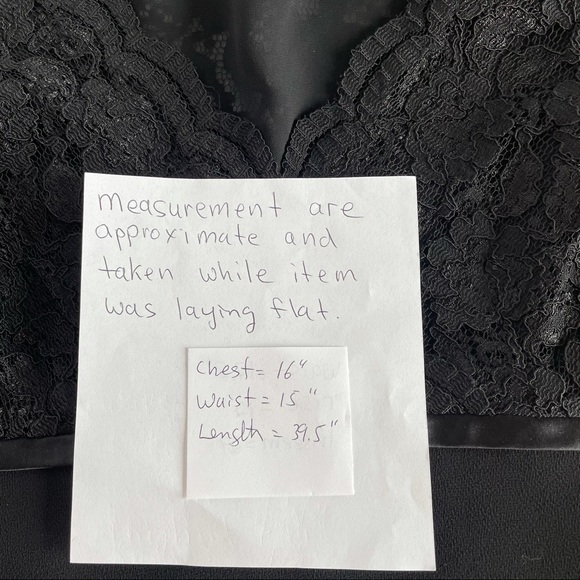 measurement are
approximate and
taken while item
was laying flat.
Chest = 16"
Waist = 15"
Length = 39.5"